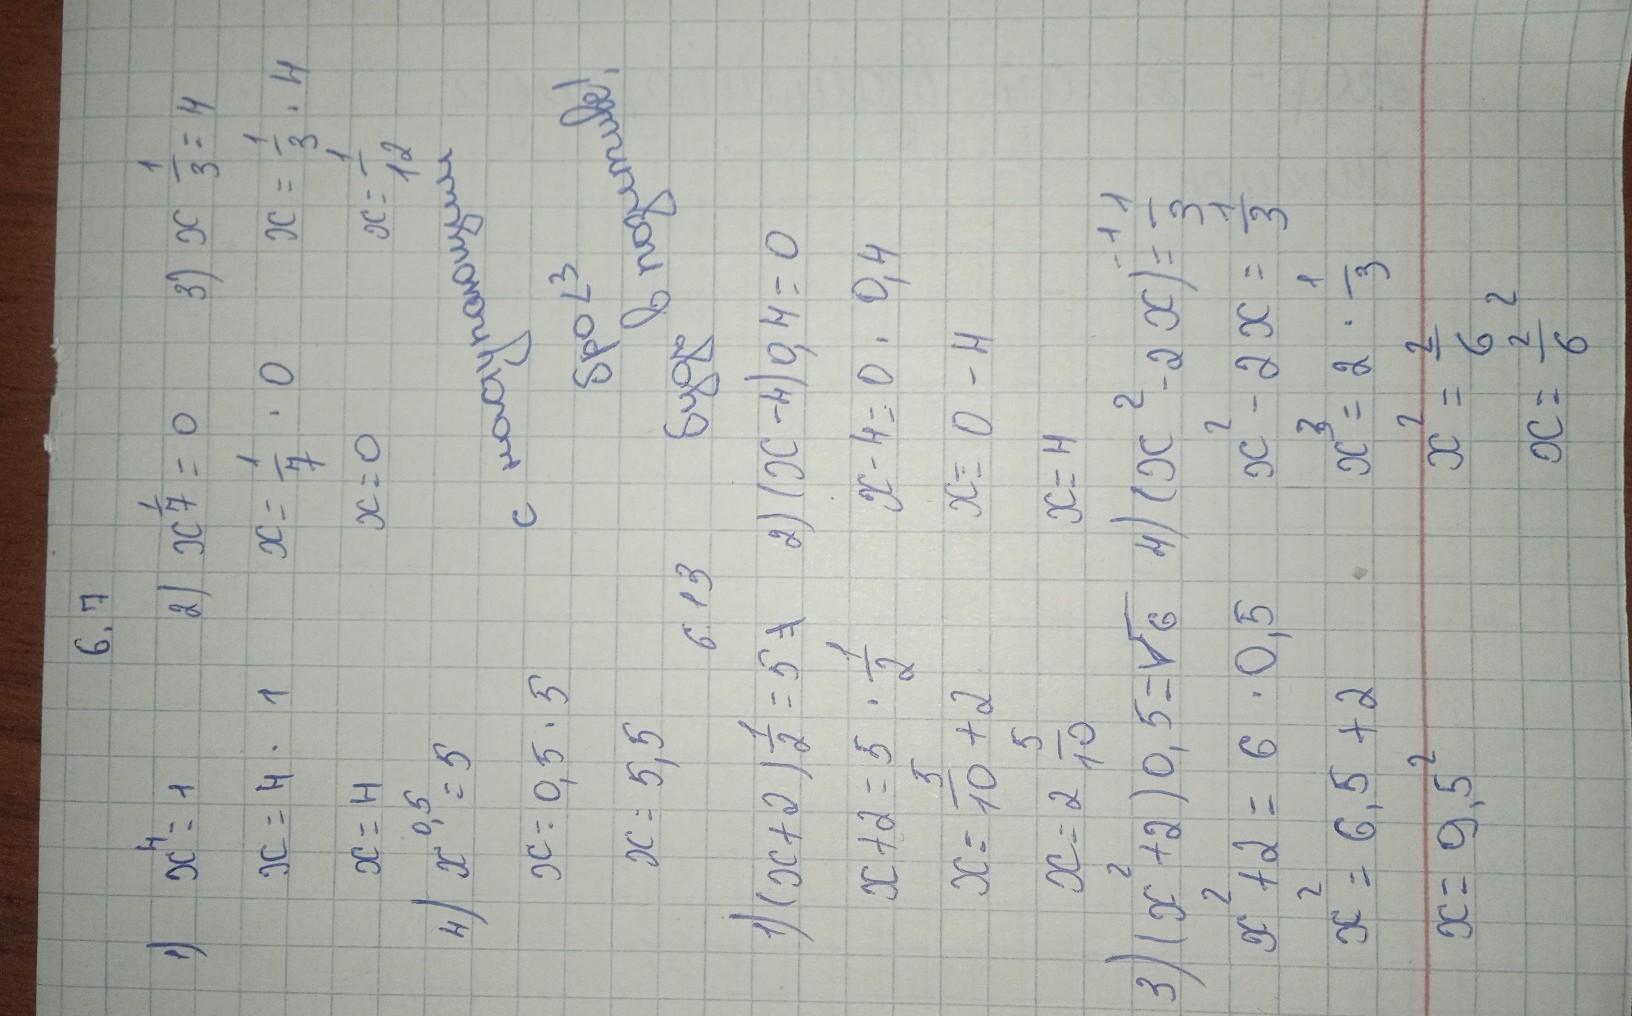 6.7
1) x⁴ = 1
x = 4 · 1
x = 4
2) x^(1/7) = 0
x = 1/7 · 0
x = 0
3) x^(1/3) = 4
x = 1/3 · 4
x = 1/12
4) x^0,5 = 5
x = 0,5 · 5
x = 5,5
с наступающим
бро <3
будь в позитиве!
6.13
1) (x+2) 1/2 = 5
x+2 = 5 · 1/2
x = 5/10 + 2
x = 2 5/10
2) (x-4) 0,4 = 0
x-4 = 0 · 0,4
x = 0 - 4
x = 4
3) (x² + 2) 0,5 = √6
x² + 2 = 6 · 0,5
x² = 6,5 + 2
x = 9,5²
4) (x² - 2x)^-1 = 1/3
x² - 2x = 1/3
x³ = 2 · 1/3
x² = 2/6
x = 2/6²